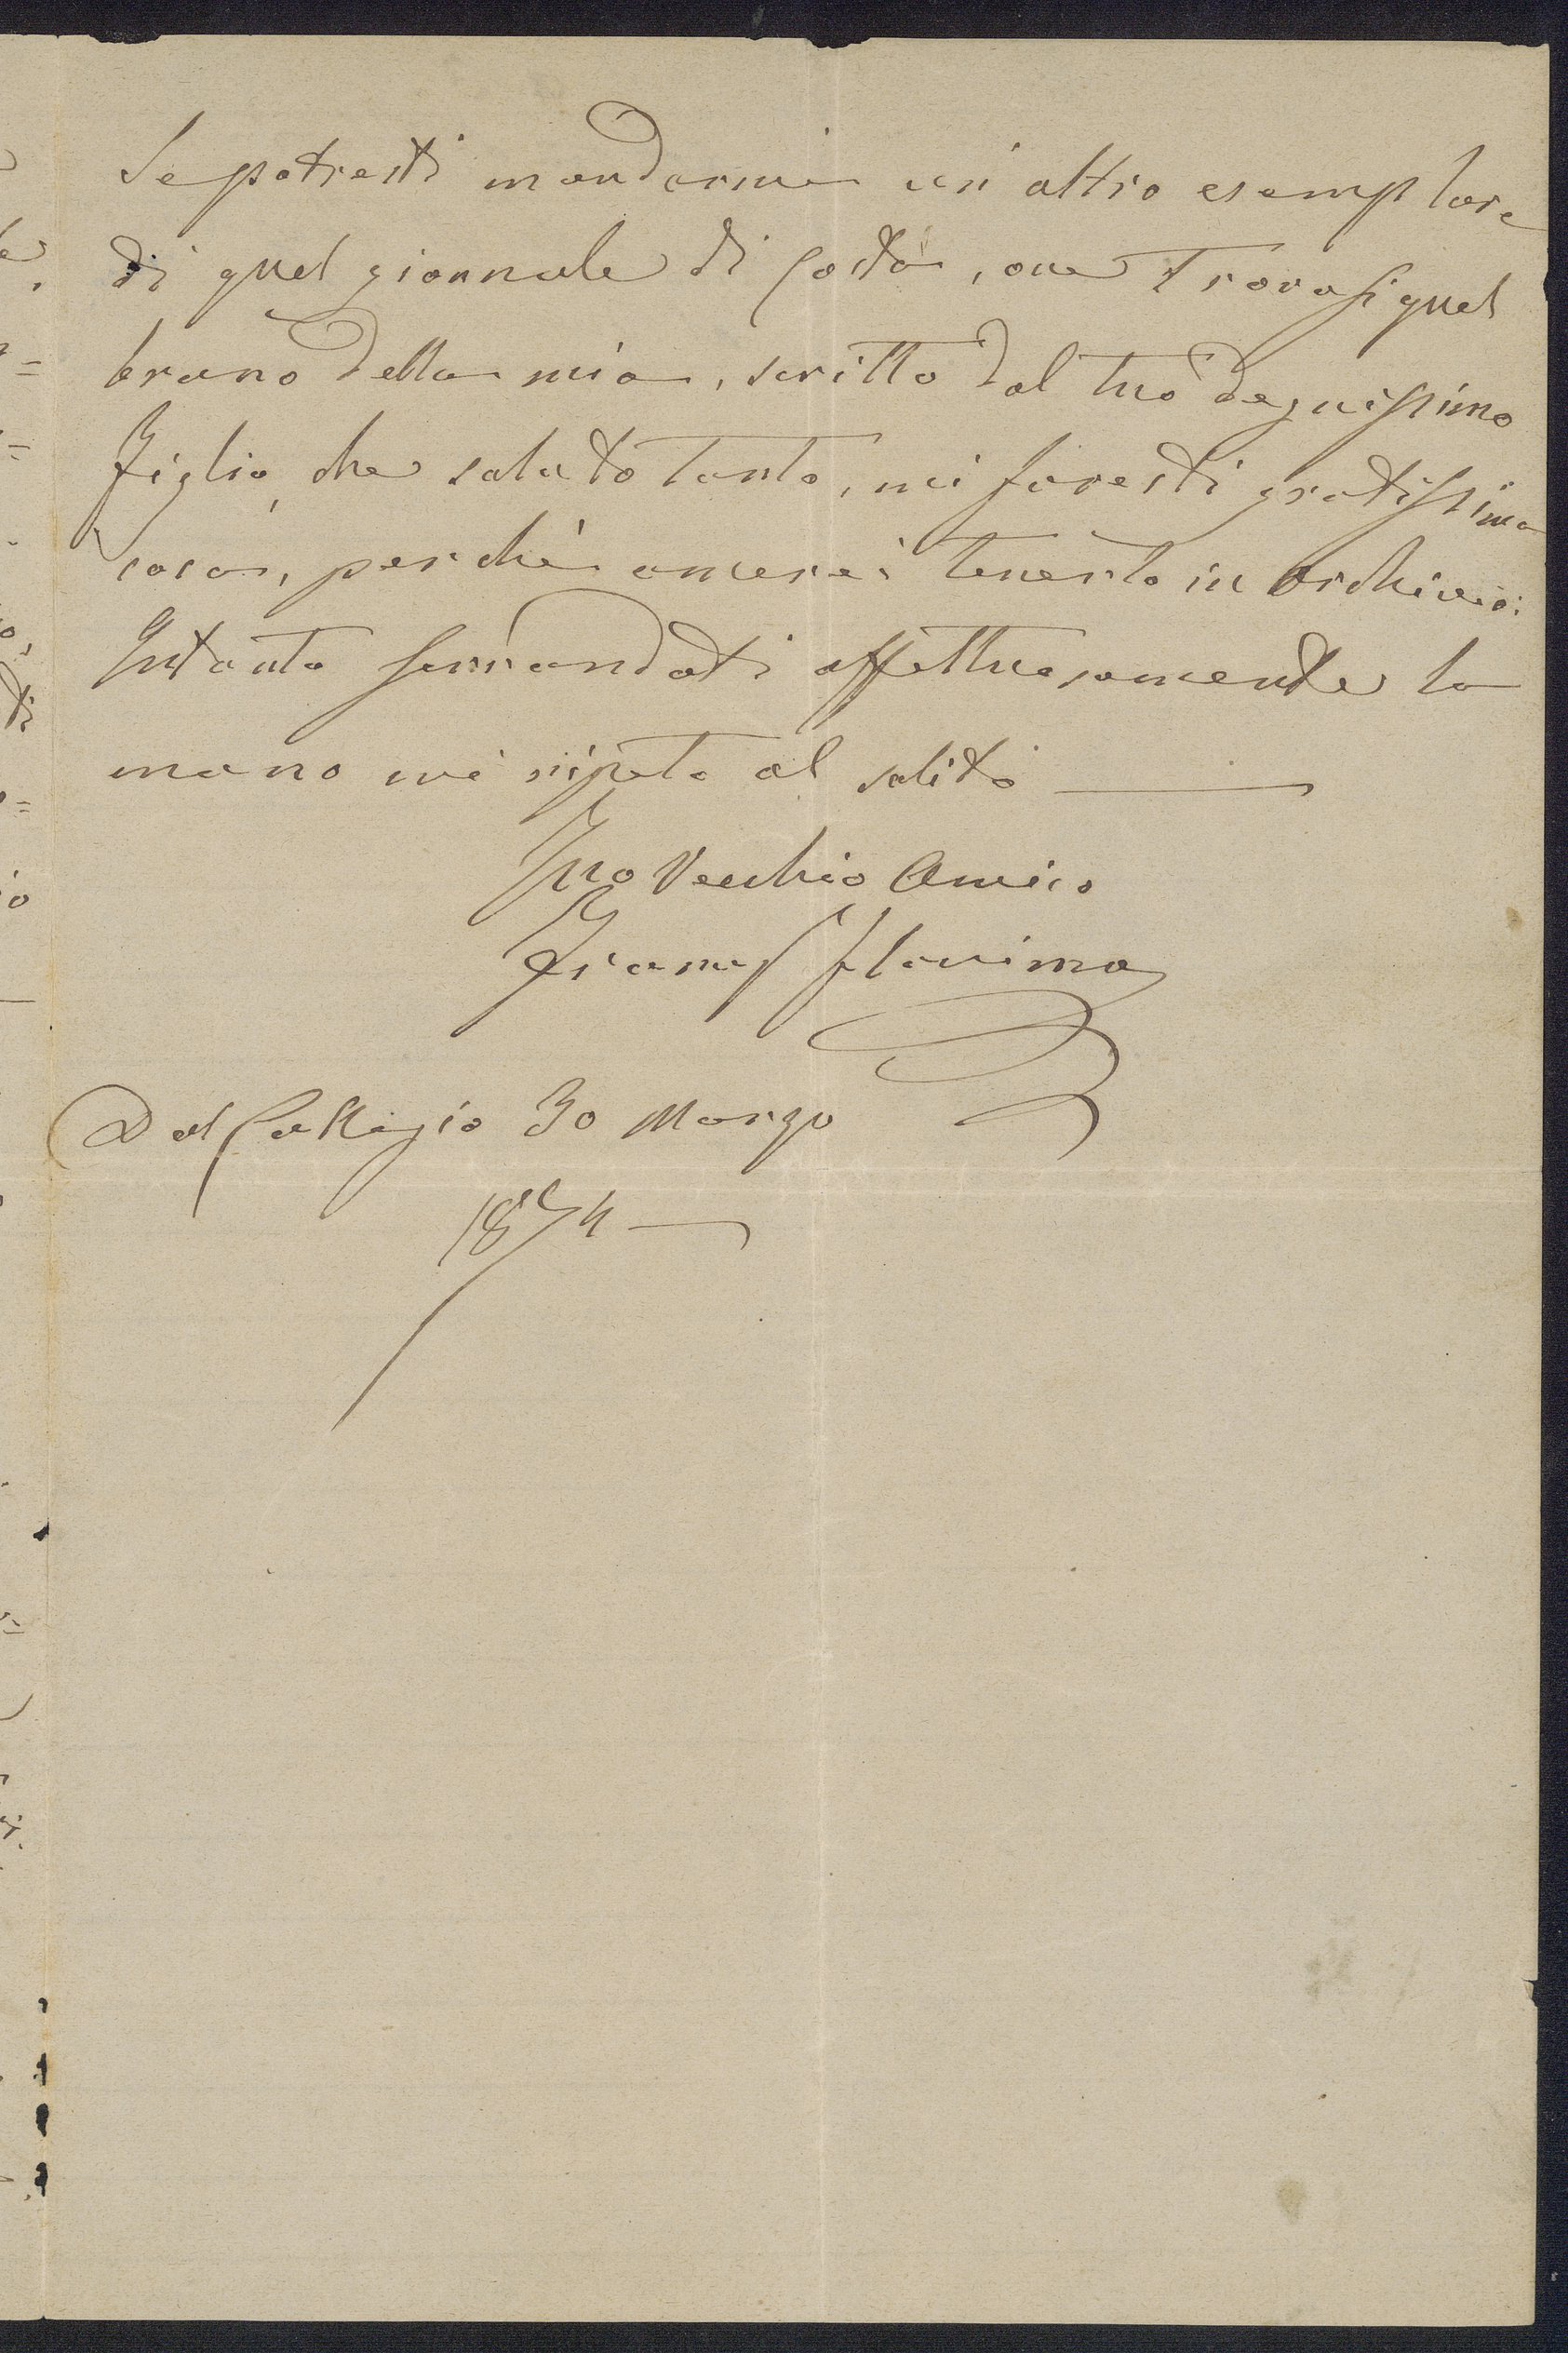 Se potresti mandarmi un'altro esemplare
di quel giornale di costà, ove trovasi quel
brano della mia, scritto dal tuo degnissimo
Figlio, che saluto tanto, mi faresti gratissima
cosa, perchè amerei tenerlo in archivio:
Intanto serrandoti affettuosamente la
mano mi ripeto al solito
Tuo Vecchio Amico
Dal Collegio 30 Marzo
1874